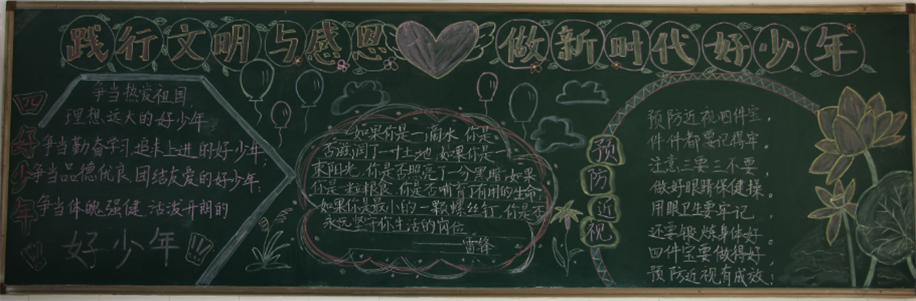 践行文明与感恩 做新时代好少年
四好少年
争当热爱祖国，
理想远大的好少年
争当勤奋学习 追求上进的好少年；
争当品德优良 团结友爱的好少年；
争当体魄强健 活泼开朗的
好少年!!!
如果你是一滴水，你是
否滋润了一寸土地，如果你是
束阳光，你是否照亮了一分黑暗，如果
你是一粒粮食，你是否哺育了有用的生命
如果你是最小的一颗螺丝钉，你是否
永远坚守你生活的岗位
——雷锋
预防近视
预防近视四件宝，
件件都要记得牢
注意三要三不要，
做好眼睛保健操。
用眼卫生要牢记，
还要锻炼身体好，
四件宝要做得好，
预防近视有成效！